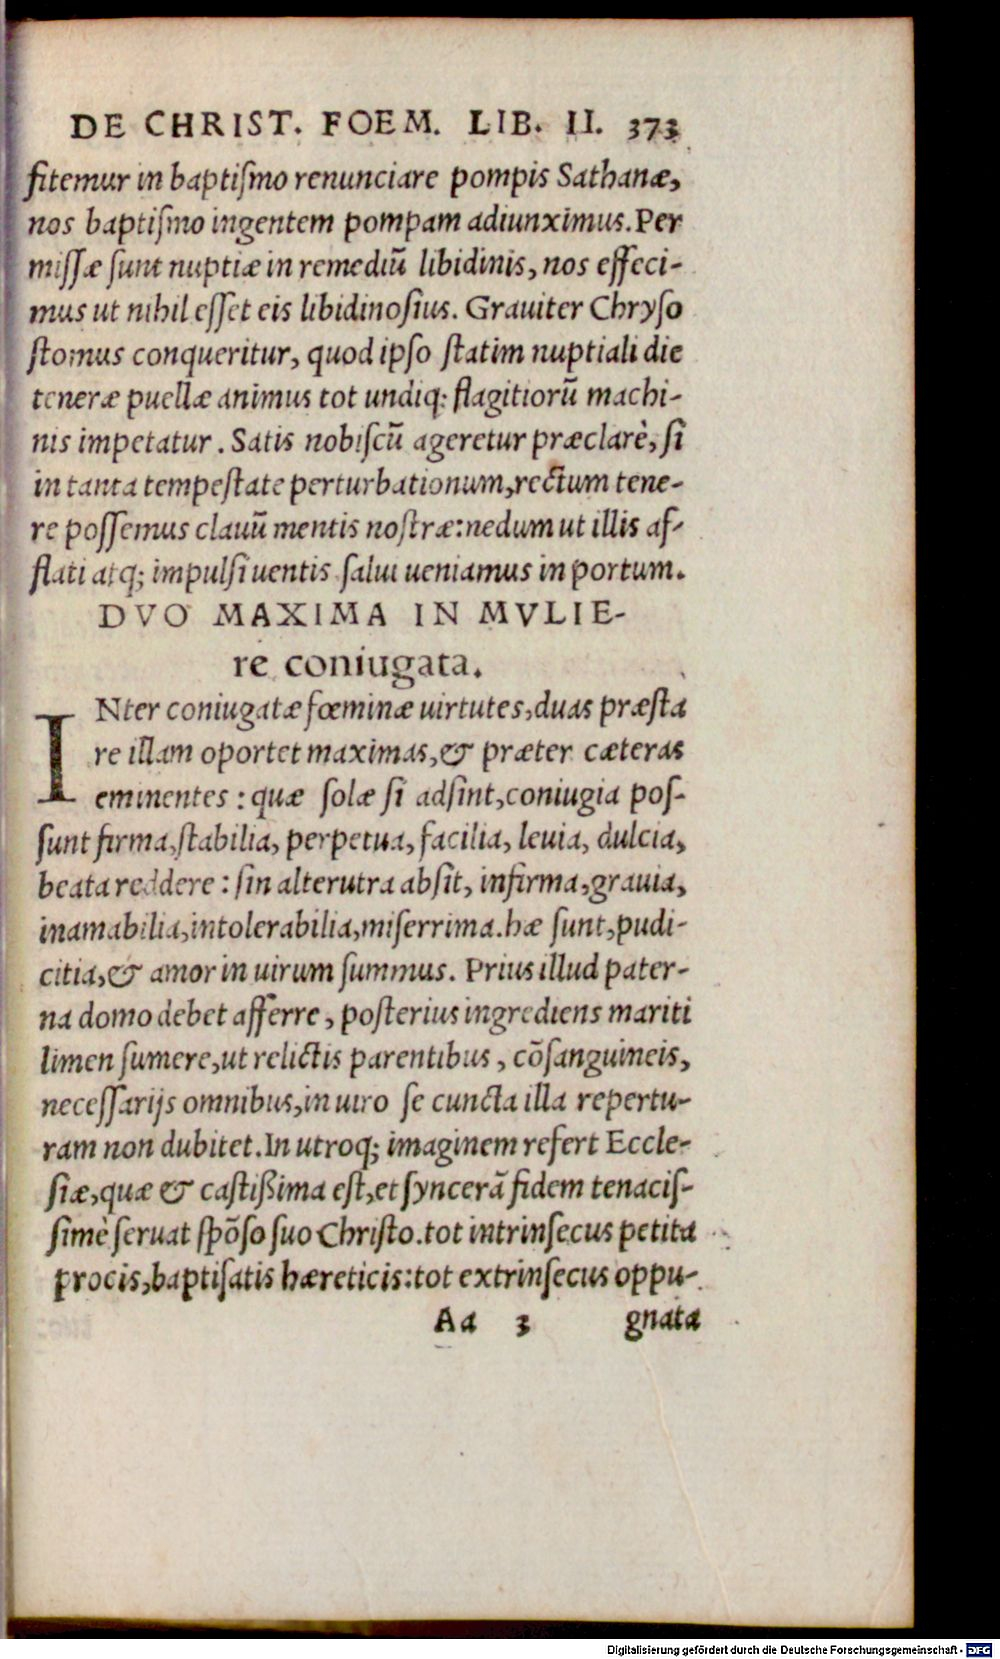 DE CHRIST. FOEM. LIB. II. 373
fitemur in baptiſmo renunciare pompis Sathanæ,
nos baptiſmo ingentem pompam adiunximus. Per
miſſæ ſunt nuptiæ in remediũ libidinis, nos effeci-
mus ut nihil eſſet eis libidinoſius. Grauiter Chryſo
ſtomus conqueritur, quod ipſo ſtatim nuptiali die
teneræ puellæ animus tot undiq; flagitiorũ machi-
nis impetatur. Satis nobiſcũ ageretur præclarè, ſi
in tanta tempeſtate perturbationum, rectum tene-
re poſſemus clauũ mentis noſtræ: nedum ut illis af-
flati atq; impulſi uentis ſalui ueniamus in portum.
DVO MAXIMA IN MVLIE-
re coniugata.
INter coniugatæ fœminæ uirtutes, duas præſta
re illam oportet maximas, & præter cæteras
eminentes: quæ ſolæ ſi adſint, coniugia poſ-
ſunt firma, ſtabilia, perpetua, facilia, leuia, dulcia,
beata reddere: ſin alterutra abſit, infirma, grauia,
inamabilia, intolerabilia, miſerrima. hæ ſunt, pudi-
citia, & amor in uirum ſummus. Prius illud pater-
na domo debet afferre, poſterius ingrediens mariti
limen ſumere, ut relictis parentibus, cõſanguineis,
neceſſarijs omnibus, in uiro ſe cuncta illa repertu-
ram non dubitet. In utroq; imaginem refert Eccle-
ſiæ, quæ & caſtißima eſt, et ſyncerã fidem tenaciſ-
ſimè ſeruat ſpõſo ſuo Chriſto. tot intrinſecus petita
procis, baptiſatis hæreticis: tot extrinſecus oppu-
Aa 3 gnata
Digitalisierung gefördert durch die Deutsche Forschungsgemeinschaft - DFG